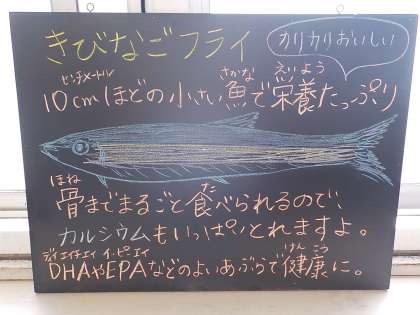 きびなごフライ
カリカリおいしい
センチメートル さかな えいよう
10cmほどの小さい魚で栄養たっぷり
ほね た
骨までまるごと食べられるので、
カルシウムもいっぱいとれますよ。
ディエイチエイ イーピーエイ けんこう
DHAやEPAなどのよいあぶらで健康に。